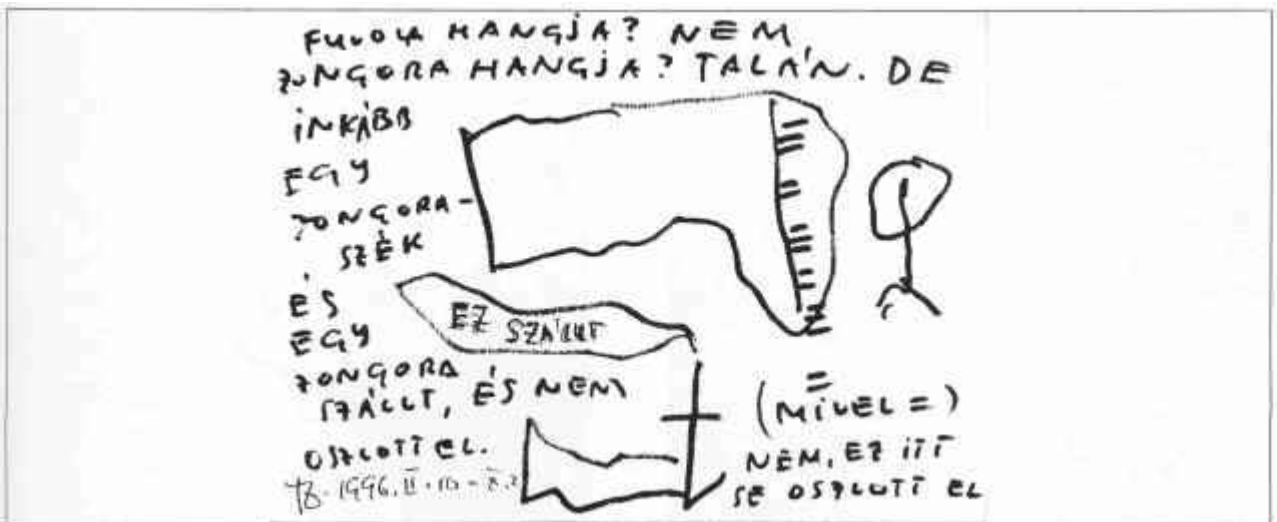 FUVOLA HANGJA? NEM,
ZONGORA HANGJA? TALÁN. DE
INKÁBB
EGY
ZONGORA-
SZÉK
ÉS
EGY
ZONGORA
SZÁLLT, ÉS NEM
OSZLOTT EL.
1996. II. 10
EZ SZÁLLT
(MIVEL =)
NEM, EZ ITT
SE OSZLOTT EL